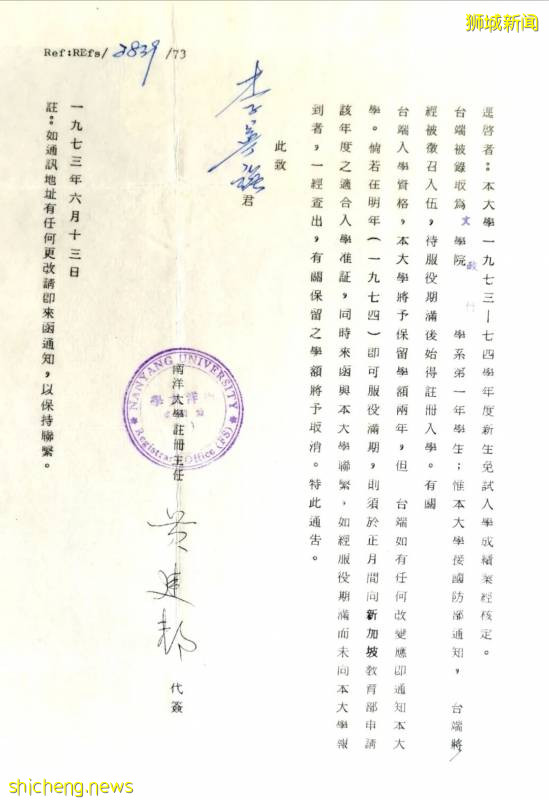 狮城新闻
Ref:REfs/2839/73
逕啓者：本大學一九七三—七四學年度新生免試入學成績業經核定。
台端被錄取爲文學院政行學系第一年學生；惟本大學接國防部通知，台端將
經被徵召入伍，待服役期滿後始得註册入學。有關
台端入學資格，本大學將予保留學額兩年，但台端如有任何改變應卽通知本大
學。倘若在明年（一九七四）卽可服役滿期，則須於正月間向新加坡教育部申請
該年度之適合入學准証，同時來函與本大學聯繫，如經服役期滿而未向本大學報
到者，一經查出，有關保留之學額將予取消。特此通告。
此致
君
NANYANG UNIVERSITY
Registrar's Office (FS)
南洋大學註册主任
代簽
一九七三年六月十三日
註：如通訊地址有任何更改請卽來函通知，以保持聯繫。
shicheng.news